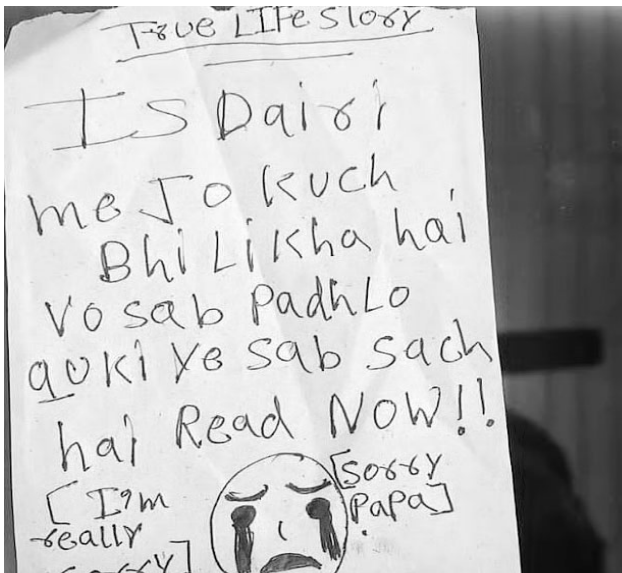 True LIFe Story
Is Dairi
me Jo kuch
Bhi Likha hai
Vo sab Padh Lo
quki ye sab sach
hai Read NOW!!
[I'm
really
sorry]
[Sorry
Papa]